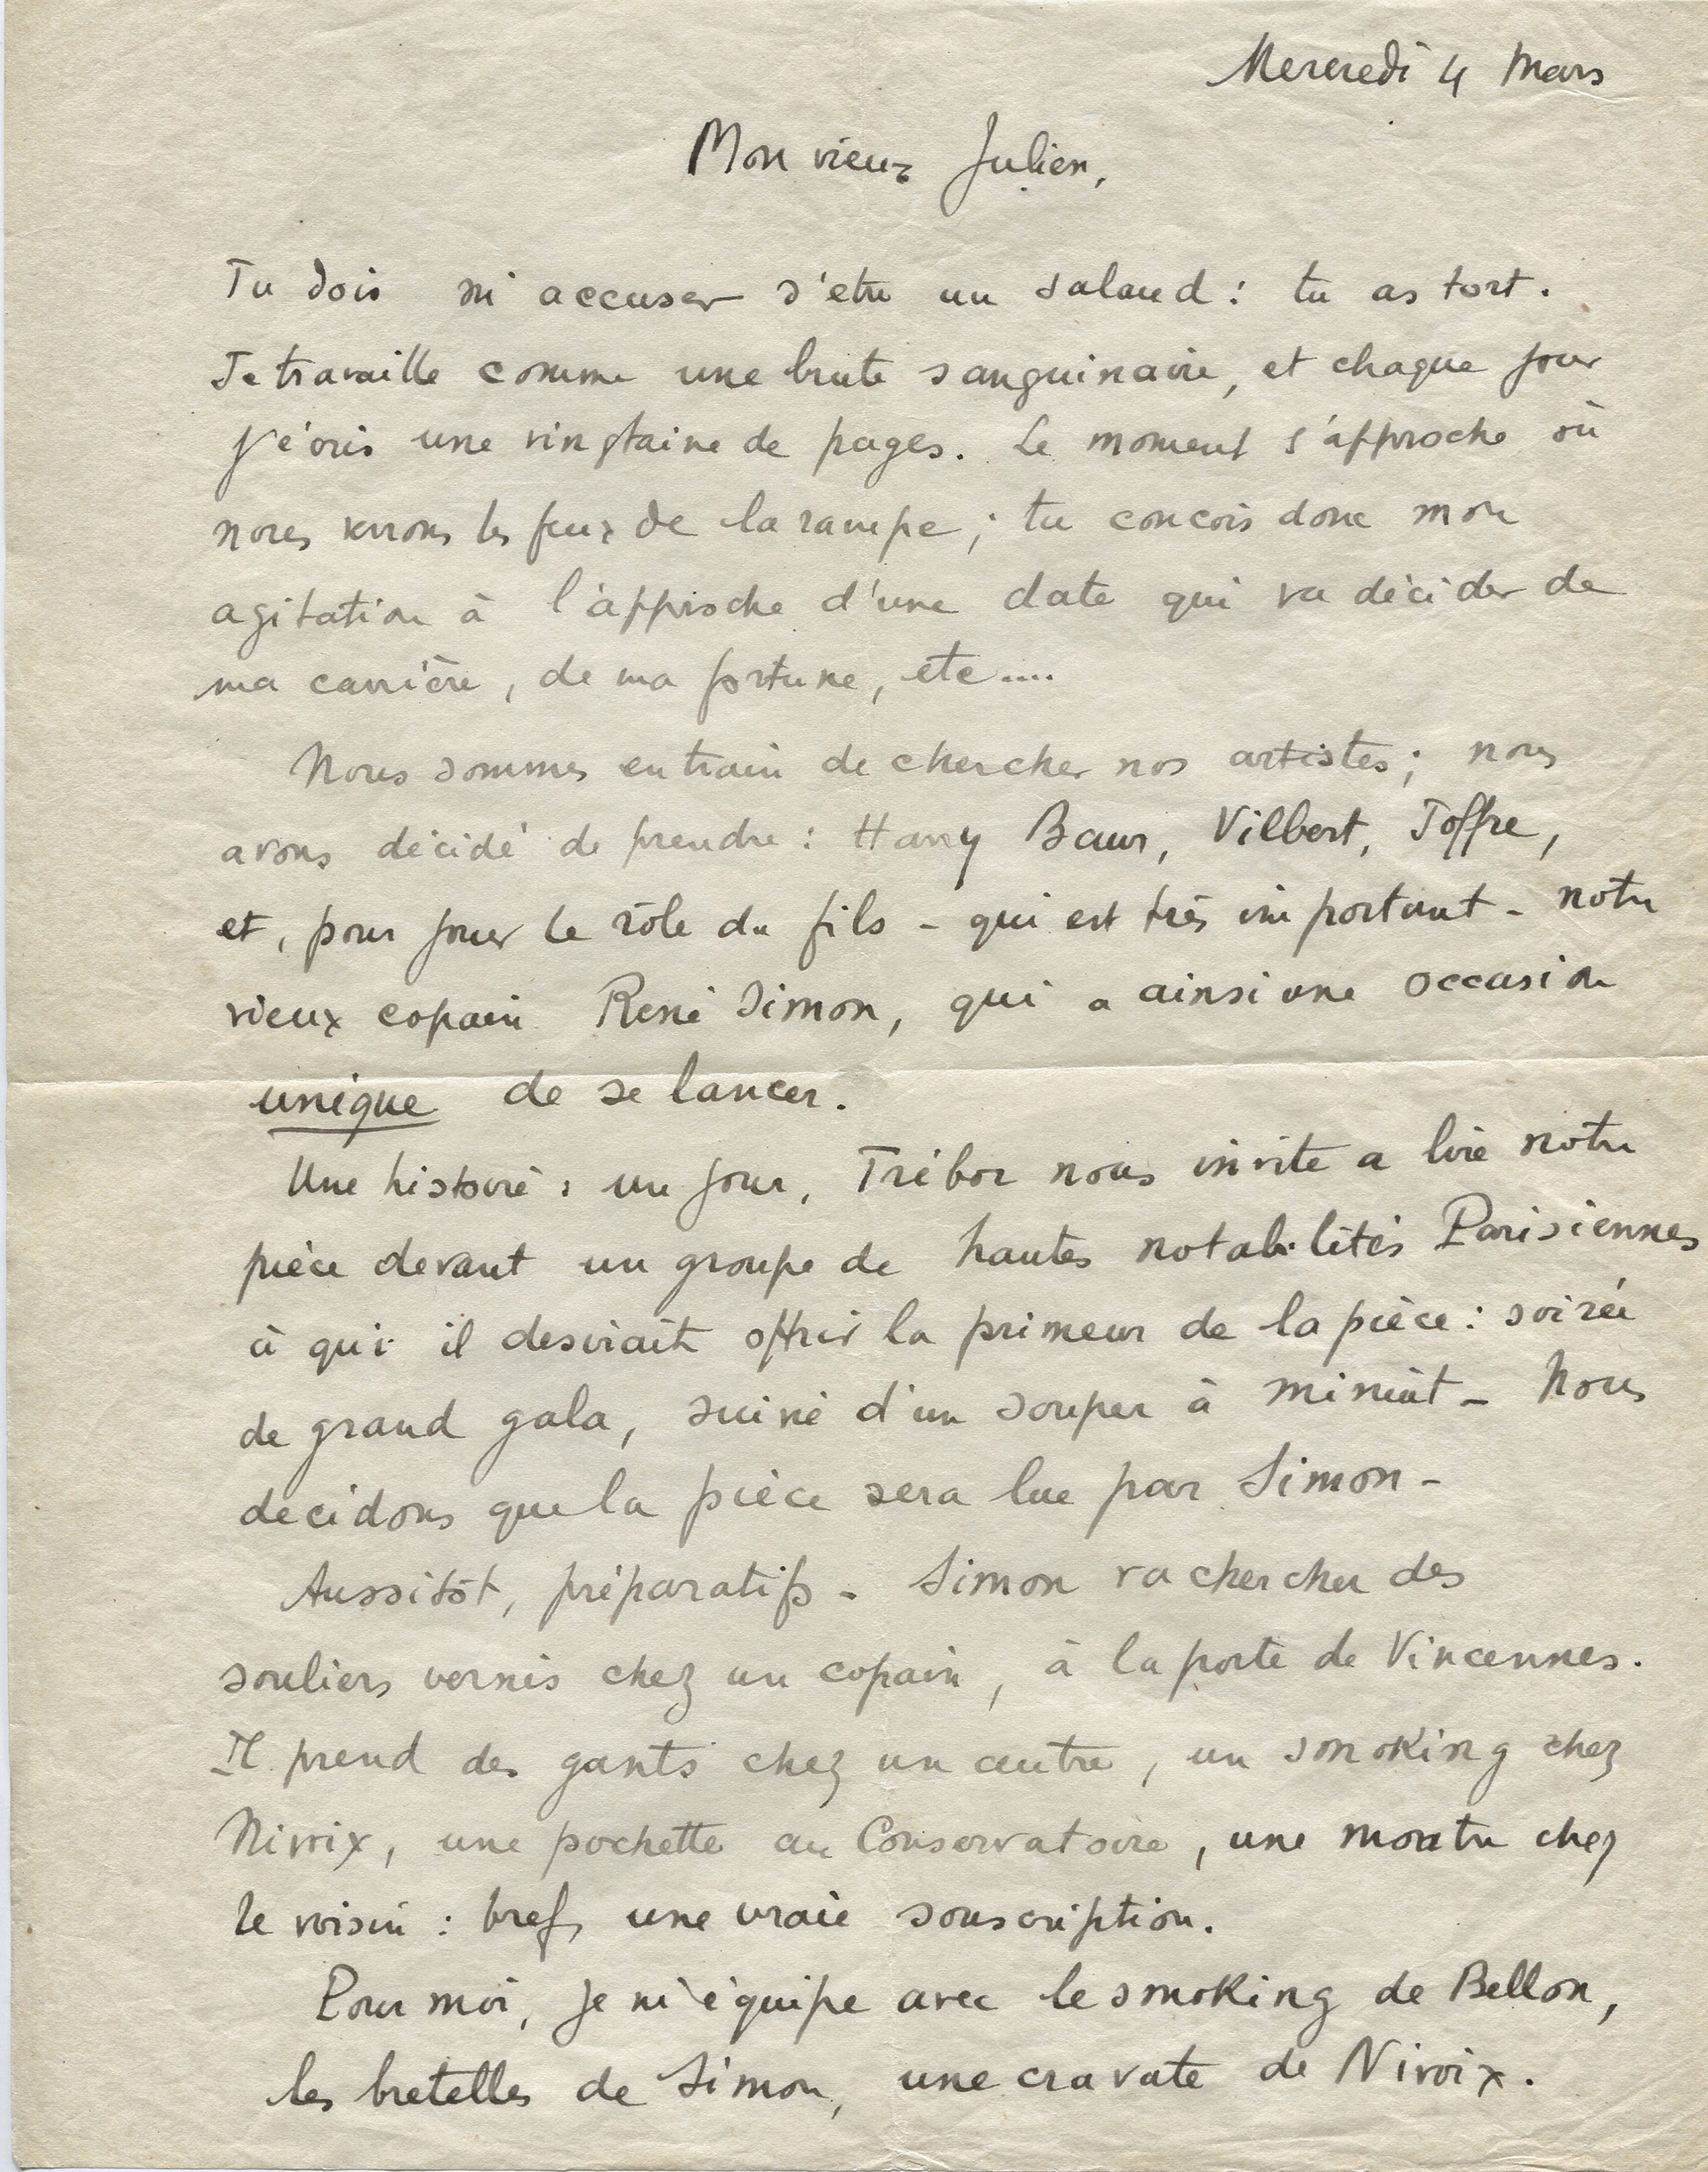 Mercredi 4 Mars
Mon vieux Julien,
Tu dois m'accuser d'etre un salaud : tu as tort.
Je travaille comme une brute sanguinaire, et chaque jour
j'écris une vingtaine de pages. Le moment s'approche où
nous verrons les feux de la rampe ; tu concois donc mon
agitation à l'approche d'une date qui va décider de
ma carrière, de ma fortune, etc....
Nous sommes en train de chercher nos artistes ; nous
avons décidé de prendre : Harry Baur, Vilbert, Joffre,
et, pour jouer le rôle du fils - qui est très important - notre
vieux copain René Simon, qui a ainsi une occasion
unique de se lancer.
Une histoire : un jour, Trébor nous invite a lire notre
pièce devant un groupe de hautes notabilités Parisiennes
à qui il desirait offrir la primeur de la pièce : soirée
de grand gala, suivie d'un souper à minuit - Nous
decidons que la pièce sera lue par Simon -
Aussitôt, préparatifs - Simon va chercher des
souliers vernis chez un copain, à la porte de Vincennes.
Il prend des gants chez un autre, un smoking chez
Nivoix, une pochette au Conservatoire, une montre chez
le voisin : bref, une vraie souscription.
Pour moi, je m'équipe avec le smoking de Bellon,
les bretelles de Simon, une cravate de Nivoix.